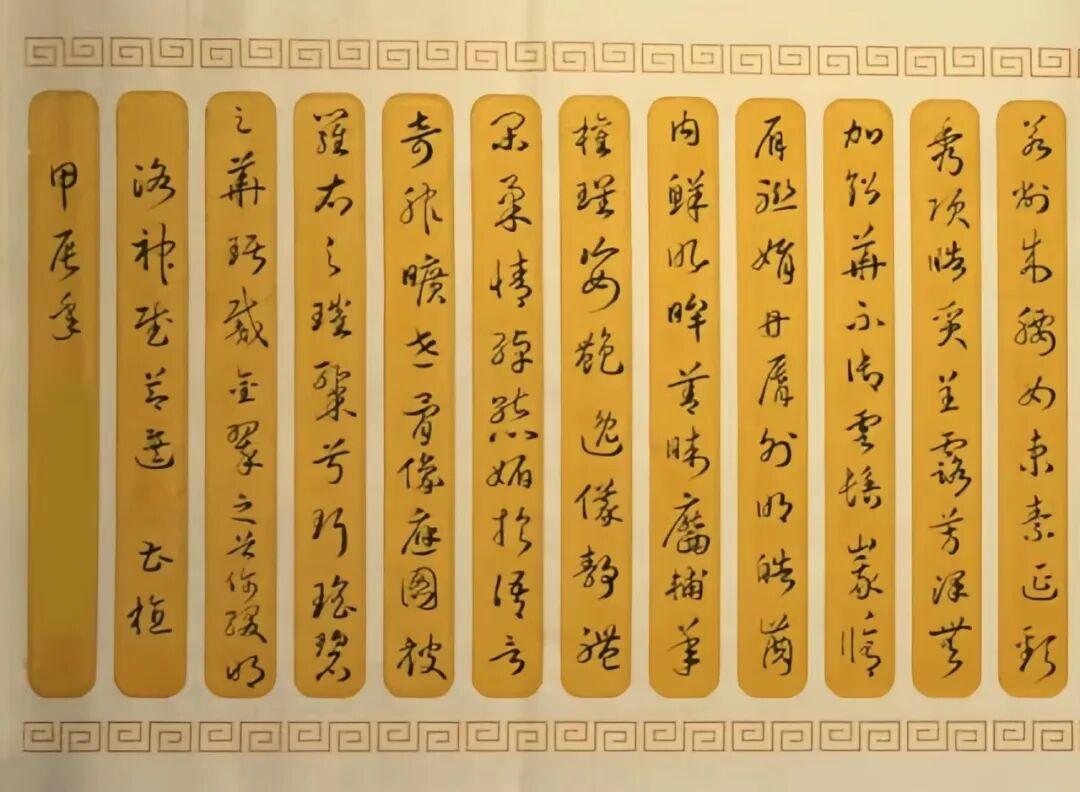 若削成腰如束素延頸
秀項皓質呈露芳澤無
加鉛華不御雲髻峩脩
眉聯娟丹脣外朗皓齒
內鮮明眸善睞靨輔承
權瓌姿艷逸儀靜體
閑柔情綽態媚於語言
奇服曠世骨像應圖披
羅衣之璀粲兮珥瑤碧
之華琚戴金翠之首飾綴明
洛神賦節選
甲辰年